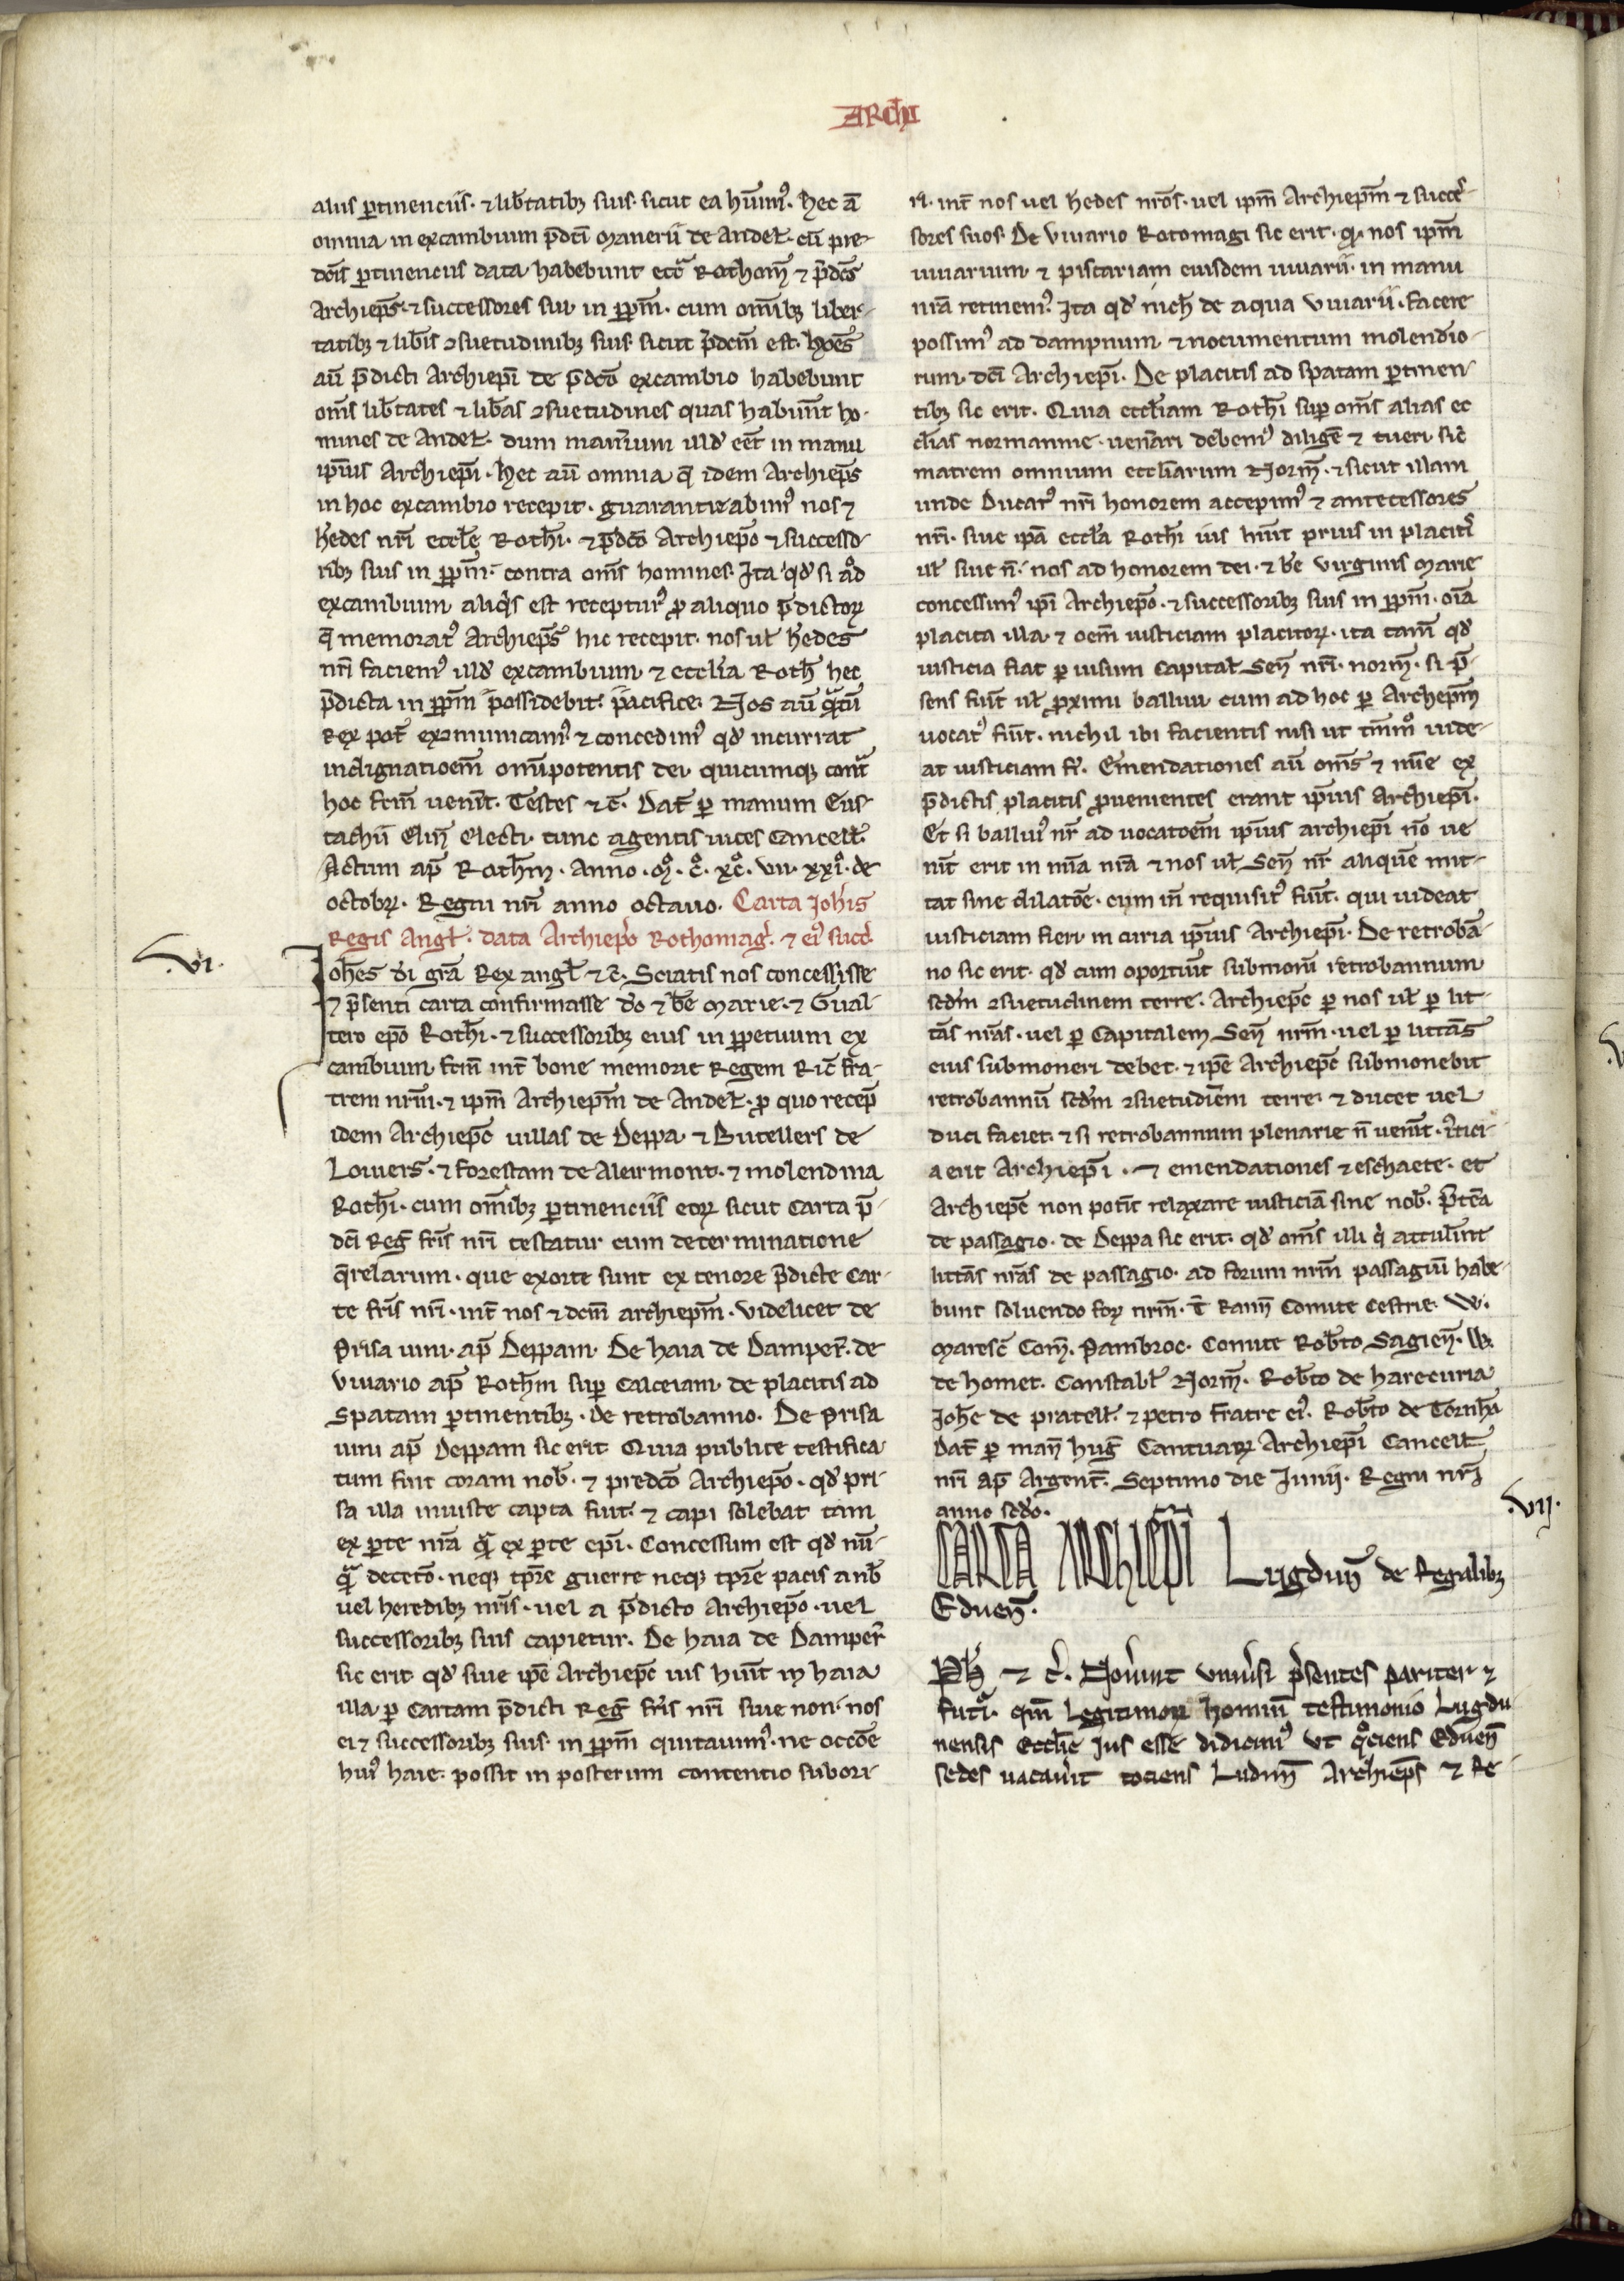 ARCHI
aliis ꝑtinenciis. ⁊ lib̃tatibꝫ suis. sicut ea huim̃ꝰ. hec ã
omnia in excambium p̃dc̃i Manerii de Andeł. cũ pre-
dc̃is ꝑtinenciis data habebunt ecc̃a Rothom̃ ⁊ p̃dc̃s
Archiep̃s. ⁊ successores sui in ꝑpm̃. cum om̃ibꝫ liber-
tatibꝫ ⁊ lib̃is ꝯsuetudinibꝫ suis sicut p̃dcm̃ est. hoẽs
aũ p̃dicti Archiep̃i de p̃dc̃o excambio habebunt
om̃s lib̃tates ⁊ lib̃as ꝯsuetudines quas habuñt ho-
mines de Andeł. dum mañium illđ eẽt in manu
ip̃ius Archiep̃i. hec aũ omnia q̃ idem Archiep̃s
in hoc excambio recepit. guarantizabimꝰ nos ⁊
h̃edes nr̃i eccłe Roth̃i. ⁊ p̃dc̃o Archiep̃o ⁊ successo-
ribꝫ suis in ꝑpm̃. contra om̃s homines. Ita qđ si ad
excambium aliq̃s est recepturꝰ ꝓ aliquo p̃dictoꝝ
q̃ memoratꝰ Archiep̃s hic recepit. nos uł h̃edes
nr̃i faciemꝰ illđ excambium ⁊ ecclia Roth̃ hec
p̃dicta in ꝑpm̃ possidebit pacifice. Nos aũ q̃ntũ
Rex pot̃ exꝯmunicamꝰ ⁊ concedimꝰ qđ incurrat
indignatioem̃ omnipotentis dei quicumqꝫ cont̃
hoc fcm̃ uen̄it. Testes ⁊ c̃. Dat̃ ꝑ manum Eus-
tachii Elieñ electi. tunc agentis uices Cancełł.
Actum ap̃ Roth̃m. Anno. M̊. C̊. XC̊. VII. XXI̊. de
octobꝝ. Regni nr̃i anno octauo. Carta Joh̃is
Regis Angł. data Archiep̃o Rothomag̃. ⁊ eiꝰ succ̃.
.VI.
Joh̃es d̃i gr̃a Rex angł ⁊ c̃. Sciatis nos concessisse
⁊ p̃senti carta confirmasse d̃o ⁊ b̃e Marie. ⁊ Gual-
tero ep̃o Roth̃i. ⁊ successoribꝫ eius in ꝑpetuum ex
cambium fcm̃ int̃ bone memorie Regem Ric̃ fra-
trem nr̃m. ⁊ ipm̃ Archiep̃m de Andeł. ꝓ quo recep̃
idem Archiep̃c uillas de Deppa ⁊ Butellers de
Louiers. ⁊ forestam de Aleirmont. ⁊ molendina
Roth̃i. cum om̃ibꝫ ꝑtinenciis eoꝝ sicut Carta p̃-
dc̃i Reg̃ fr̃is nr̃i testatur cum determinatione
q̃relarum. que exorte sunt ex tenore p̃dicte Car-
te fr̃is nr̃i. int̃ nos ⁊ dcm̃ archiep̃m. Videlicet de
Prisa uini. ap̃ Deppam. De haia de Damper̃. de
Viuario ap̃ Roth̃m suꝑ Calceiam. de placitis ad
Spatam ꝑtinentibꝫ. de retrobanno. De Prisa
uini ap̃ Deppam sic erit Quia publice testifica-
tum fuit coram nob̃. ⁊ predc̃o Archiep̃o. qđ pri-
sa illa iniuste capta fuit. ⁊ capi solebat tam
ex ꝑte nr̃a q̃ ex ꝑte ep̃i. Concessum est qđ nũ-
q̃ decet̃o. neqꝫ tp̃re guerre neqꝫ tp̃re pacis a nob̃
uel heredibꝫ nr̃is. uel a p̃dicto Archiep̃o. uel
successoribꝫ suis capietur. De haia de Damper̃
sic erit qđ siue ip̃e Archiep̃c ius huit̃ in haia
illa ꝑ Cartam p̃dicti Reg̃ fr̃is nr̃i siue non. nos
ei ⁊ successoribꝫ suis in ꝑpm̃ quitauimꝰ. ne occõe
huiꝰ haie. possit in posterum contentio subori-
ri. int̃ nos uel h̃edes nr̃os. uel ipm̃ Archiep̃m ⁊ succes-
sores suos. De Viuario Rotomagi sic erit. q̃. nos ipm̃
uiuarium ⁊ piscariam eiusdem uiuarii. in manu
nr̃a retinemꝰ. Ita qđ nich̃ de aqua Viuarii. facere
possimꝰ ad dampnum ⁊ nocumentum molendino-
rum dc̃i Archiep̃i. De placitis ad spatam ꝑtinen-
tibꝫ sic erit. Quia eccliam Roth̃i suꝑ om̃s alias ec
clias normannie. uen̄ari debemꝰ dilig̃e ⁊ tueri sic̃
matrem omnium eccliarum Norm̃. ⁊ sicut illam
unde Ducatꝰ nr̃i honorem accepimꝰ ⁊ antecessores
nr̃i. siue ip̃a eccła Roth̃i ius huit̃ prius in placitis
uł siue ñ. nos ad honorem dei. ⁊ b̃e Virginis Marie
concessimꝰ ip̃i Archiep̃o. ⁊ successoribꝫ suis in ꝑpm̃. oĩa
placita illa. ⁊ oem̃ iusticiam placitoꝝ. ita tam̃ qđ
iusticia fiat ꝑ uisum Capitał Señ nr̃i. norm̃. si p̃-
sens fuit̃ uł ꝓximi balliui cum ad hoc ꝑ Archiep̃m
uocatꝰ fuit̃. nichil ibi facientis nisi ut tm̃mo uide-
at iusticiam fi̇. Emendationes aũ om̃s ⁊ mie ex
p̃dictis placitis ꝓuenientes erunt ip̃ius Archiep̃i.
Et si balliuꝰ nr̃ ad uocatoem̃ ip̃ius archiep̃i nõ ue
nit̃ erit in mĩa nr̃a ⁊ nos uł Señ nr̃ aliquem mit-
tat sine dilatõe. cum in̄ requisitꝰ fuit̃. qui uideat
iusticiam fieri in curia ip̃ius Archiep̃i. De retrobã-
no sic erit. qđ cum oportuit̃ submon̄i retrobannum
scdm̃ ꝯsuetudinem terre. Archiep̃c ꝑ nos uł ꝑ lit-
tãs nr̃as. uel ꝑ Capitalem Señ nr̃m. uel ꝑ littãs
eius submoneri debet. ⁊ ip̃e Archiep̃c submonebit
retrobannũ scdm̃ ꝯsuetudiem̃ terre. ⁊ ducet uel
duci faciet. ⁊ si retrobannum plenarie ñ uenit̃. iustici-
a erit Archiep̃i. ⁊ emendationes ⁊ eschaete. et
Archiep̃c non potit̃ relaxare iusticiã sine nob̃. P̃tea
de passagio. de Deppa sic erit. qđ om̃s illi q̃ attulint̃
littãs nr̃as de passagio. ad forum nr̃m passagiũ habe-
bunt soluendo foꝝ nr̃m. T̃ Rann̄ Comite Cestrie. W.
Maresc̃ Com̃. Pambroc. Comite Rob̃to Sagieñ. W.
de homet. Constabł Norm̃. Rob̃to de harecuria
Joh̃e de pratełł. ⁊ petro fratre eiꝰ. Rob̃to de Tornh̃a
Dat̃ ꝑ mañ hug̃ Cantuaꝝ Archiep̃i Cancełł
nr̃i ap̃ Argent̃. Septimo die Junii. Regni nr̃i
anno scdo.
.VII.
CARTA ARCHIEP̃I Lugduñ de Regalibꝫ
Edueñ.
Ph̃ ⁊ c̃. Nou̇int uniũsi p̃sentes pariter ⁊
futi̇. qm̃ Legitimoꝝ hominũ testimonio Lugdu-
nensis Eccłie Ius esse didicimꝰ Ut q̊ciens Edueñ
sedes uacau̇it tociens Luduñ Archiep̃s ⁊ Re-